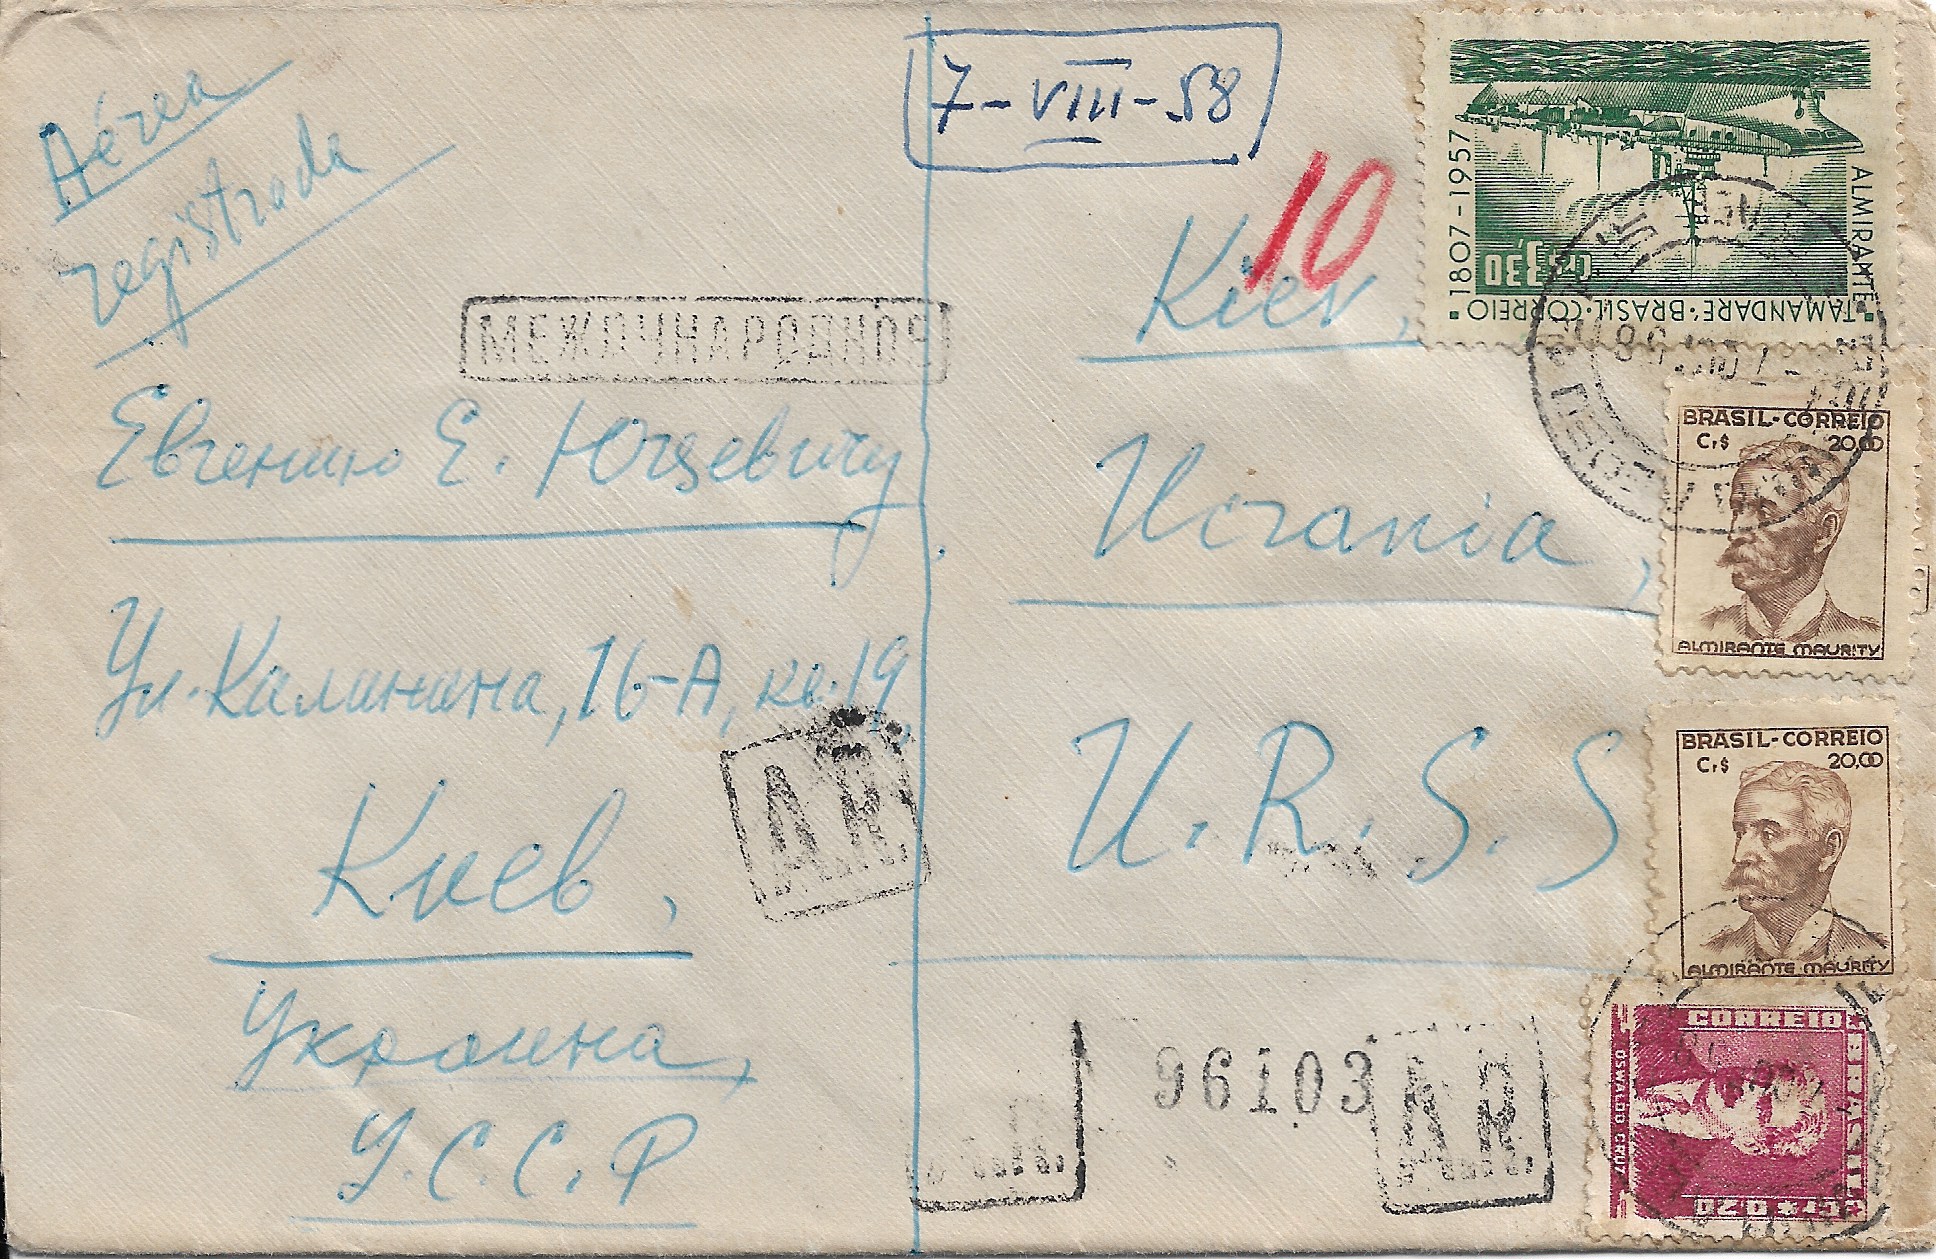 Aérea
registrada
7-VIII-58
10
МЕЖДУНАРОДНОЕ
Евгению Е. Юцевичу
Ул. Калинина, 16-А, кв. 19,
Киев,
Украина,
У.С.С.Р
Kiev,
Ucrania,
U.R.S.S
A.R.
96103
A.R.
A.R.
1807-1957
ALMIRANTE
TAMANDARÉ·BRASIL·CORREIO
Cr$ 3,30
BRASIL-CORREIO
Cr$ 20,00
ALMIRANTE MAURITY
BRASIL-CORREIO
Cr$ 20,00
ALMIRANTE MAURITY
BRASIL
CORREIO
OSWALDO CRUZ
Cr$ 0,20